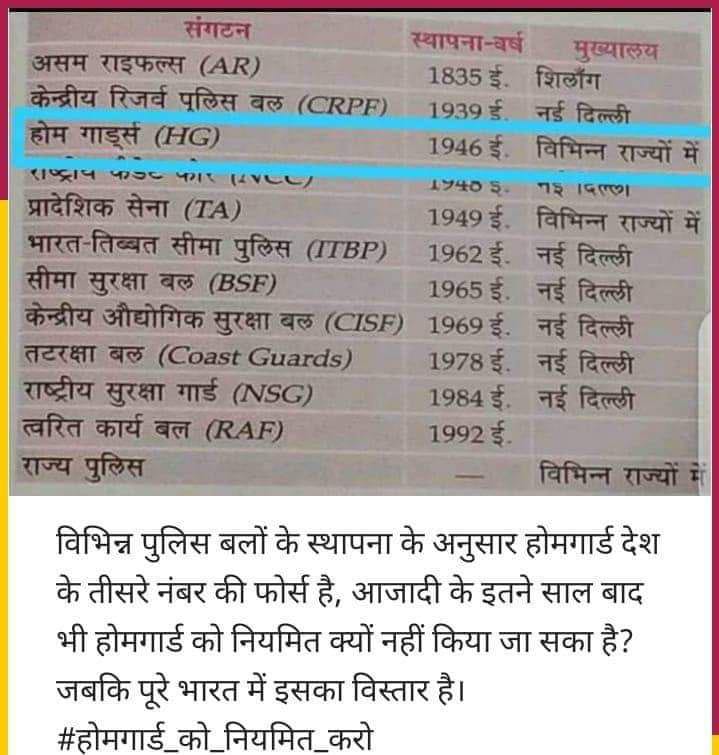 संगठन स्थापना-वर्ष मुख्यालय
असम राइफल्स (AR) 1835 ई. शिलौंग
केन्द्रीय रिजर्व पुलिस बल (CRPF) 1939 ई. नई दिल्ली
होम गार्ड्स (HG) 1946 ई. विभिन्न राज्यों में
राष्ट्रीय कैडेट कोर (NCC) 1948 ई. नई दिल्ली
प्रादेशिक सेना (TA) 1949 ई. विभिन्न राज्यों में
भारत-तिब्बत सीमा पुलिस (ITBP) 1962 ई. नई दिल्ली
सीमा सुरक्षा बल (BSF) 1965 ई. नई दिल्ली
केन्द्रीय औद्योगिक सुरक्षा बल (CISF) 1969 ई. नई दिल्ली
तटरक्षा बल (Coast Guards) 1978 ई. नई दिल्ली
राष्ट्रीय सुरक्षा गार्ड (NSG) 1984 ई. नई दिल्ली
त्वरित कार्य बल (RAF) 1992 ई.
राज्य पुलिस — विभिन्न राज्यों में
विभिन्न पुलिस बलों के स्थापना के अनुसार होमगार्ड देश
के तीसरे नंबर की फोर्स है, आजादी के इतने साल बाद
भी होमगार्ड को नियमित क्यों नहीं किया जा सका है?
जबकि पूरे भारत में इसका विस्तार है।
#होमगार्ड_को_नियमित_करो